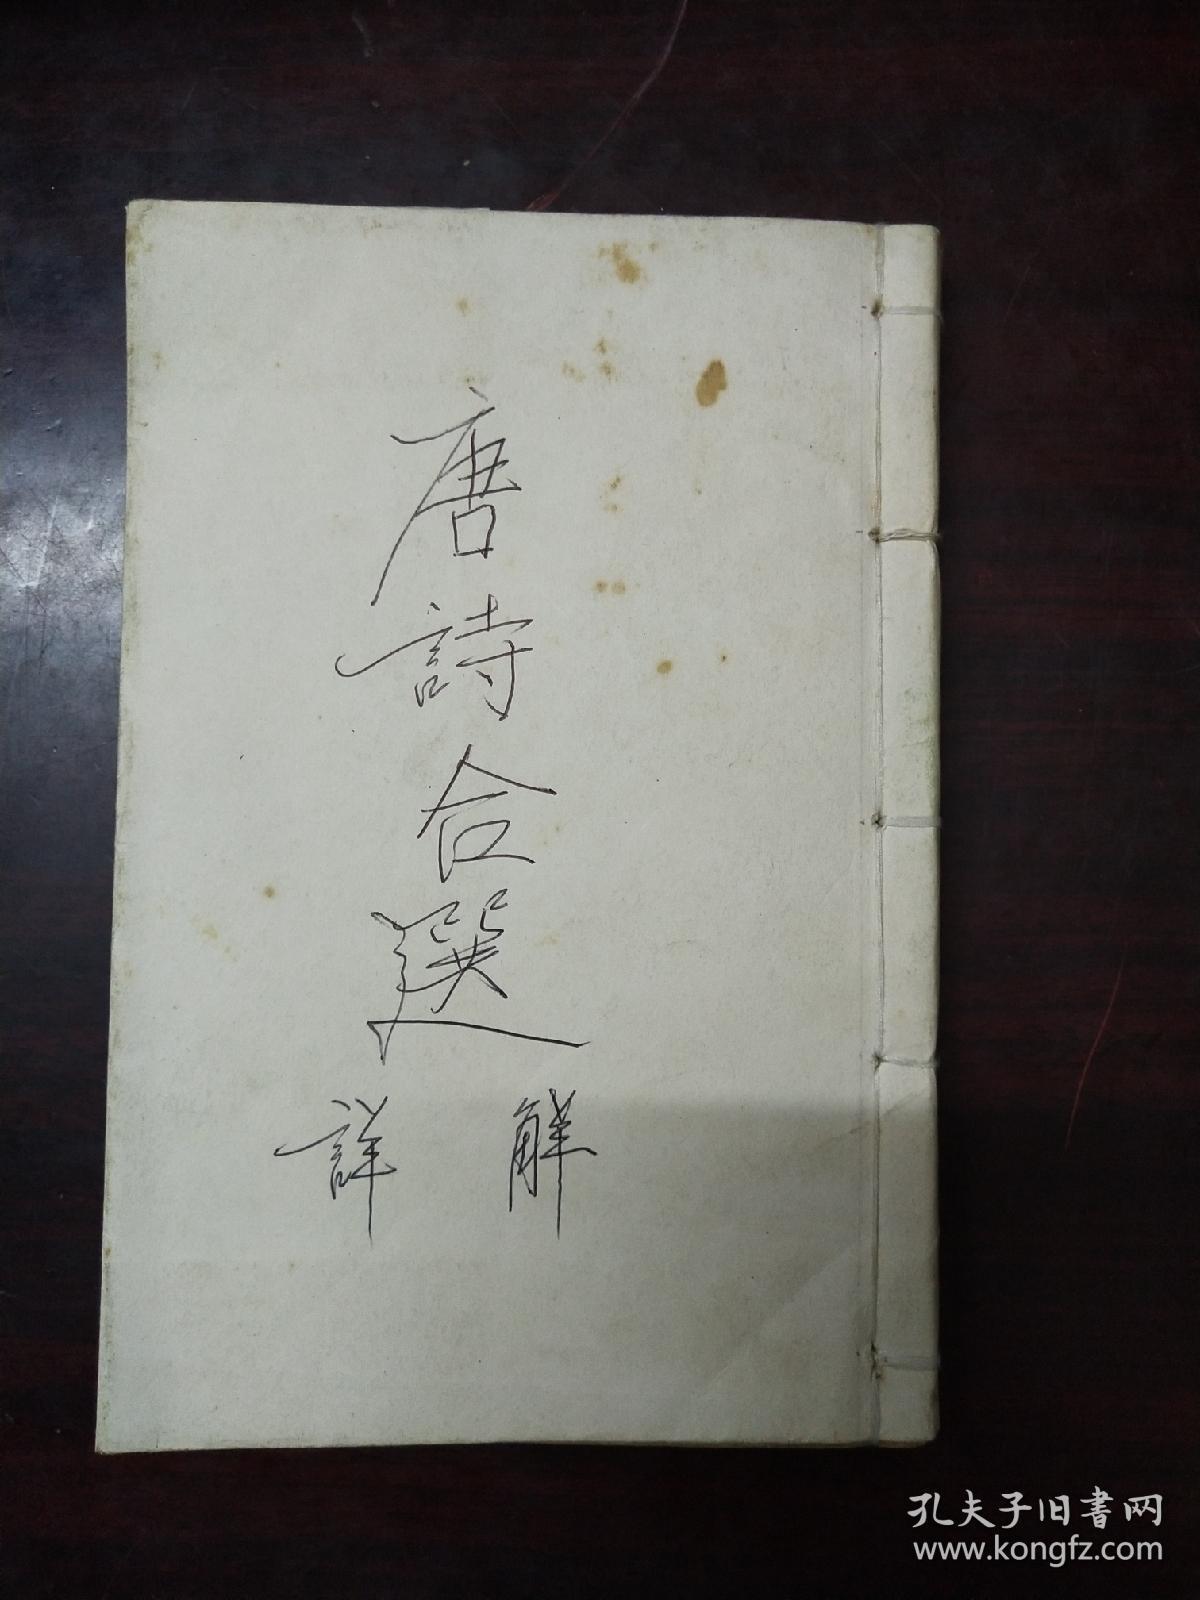 唐詩合選
詳解
孔夫子旧書网
www.kongfz.com